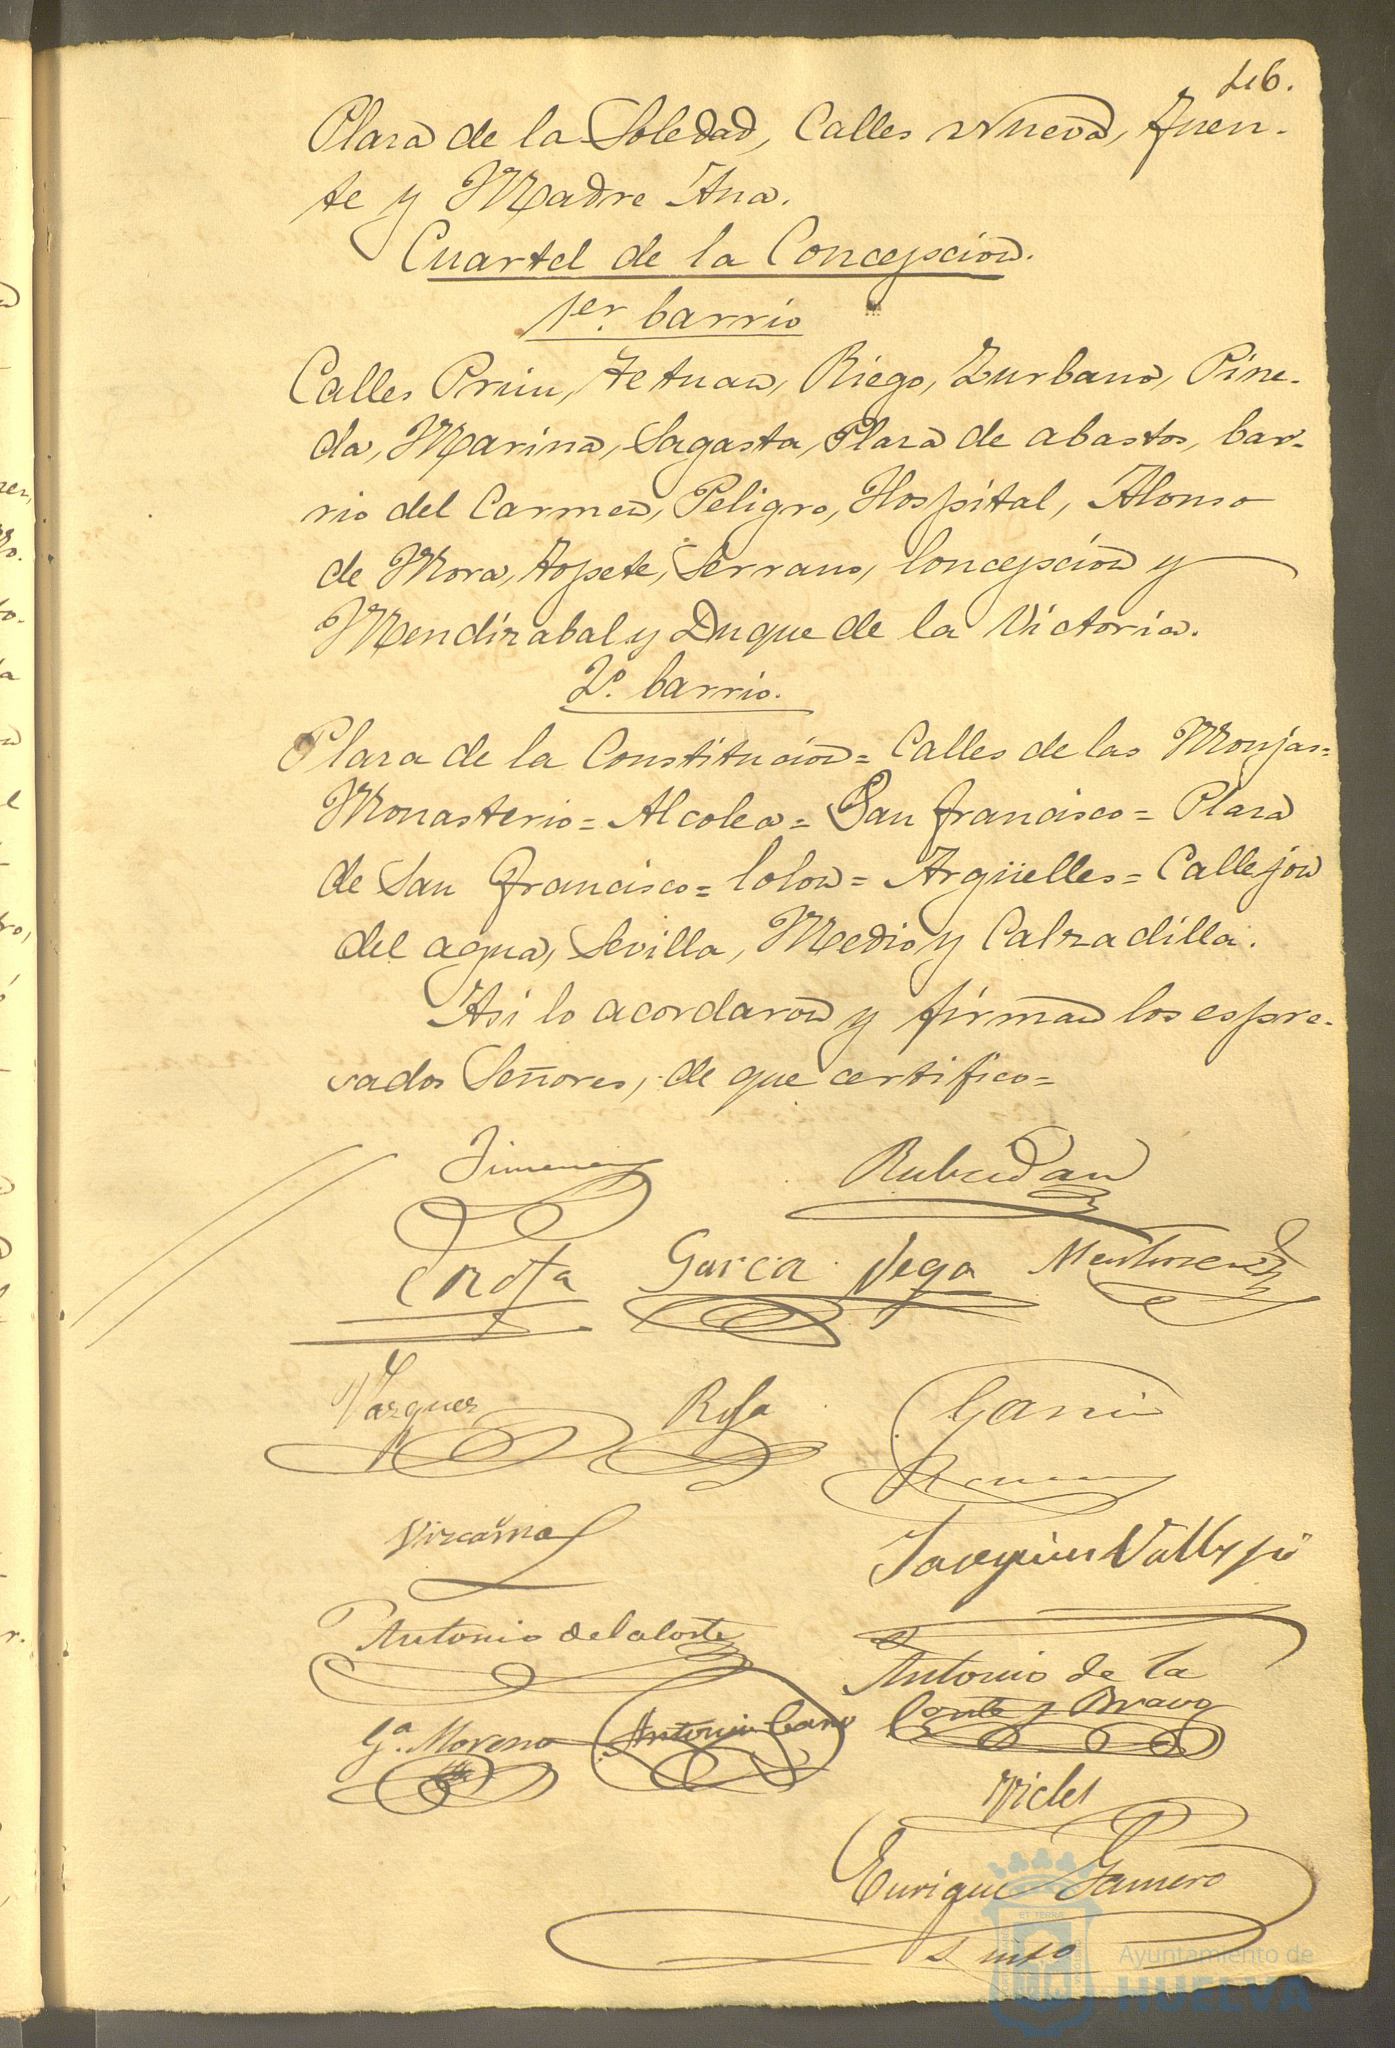 46.
Plaza de la Soledad, Calles Nueva, Fuen-
te y Madre Ana.
Cuartel de la Concepcion.
1er. barrio
Calles Prim, Tetuan, Riego, Zurbano, Pine-
da, Marina, Sagasta, Plaza de abastos, bar-
rio del Carmen, Peligro, Hospital, Alonso
de Mora, Topete, Serrano, Concepcion y
Mendizabal y Duque de la Victoria.
2º. barrio.
Plaza de la Constitucion = Calles de las Monjas =
Monasterio = Alcolea = San Francisco = Plaza
de San Francisco = Colon = Argüelles = Callejon
del agua, Sevilla, Medio y Calzadilla.
Asi lo acordaron y firman los espre-
sados Señores, de que certifico =
Jimenez
Garcia Vega
Vazquez
Vizcaino
Antonio de la Corte
Antonio de la
Corte y Bravo
Gª. Moreno
Antonio Cano
Enrique Gamero
ET TERRÆ
Ayuntamiento de
HUELVA